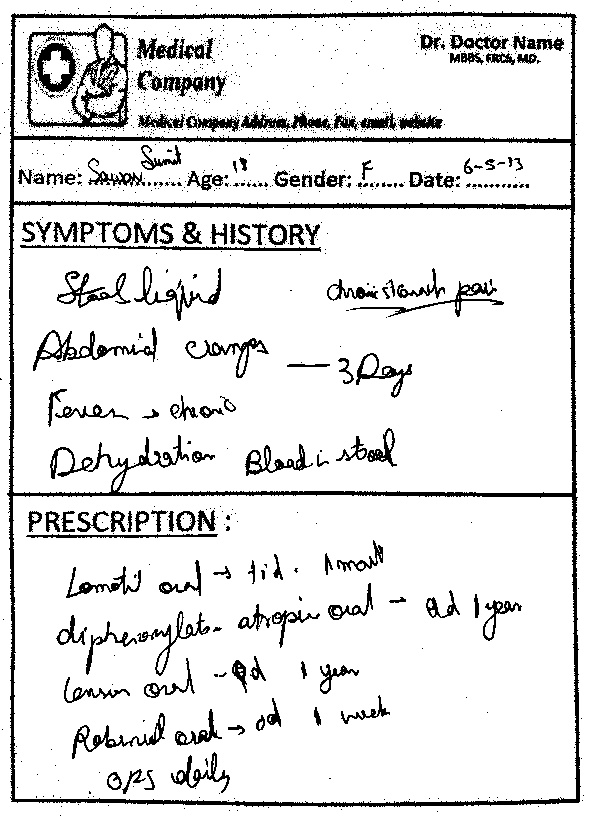 Medical
Company
Dr. Doctor Name
MBBS, FRCS, MD.
Medical Company Address, Phone, Fax, email, website
Name: Sawan Sumit Age: 18 Gender: F Date: 6-5-13
SYMPTOMS & HISTORY
Stool liquid
pain
Abdomid cramps — 3 Days
Fever → chronic
Dehydration Blood in stool
PRESCRIPTION :
Lomotil oral → tid. 1 month
diphenoxylate- atropin oral - qd 1 year
oral - qd 1 year
Robinul oral → od 1 week
ORS daily